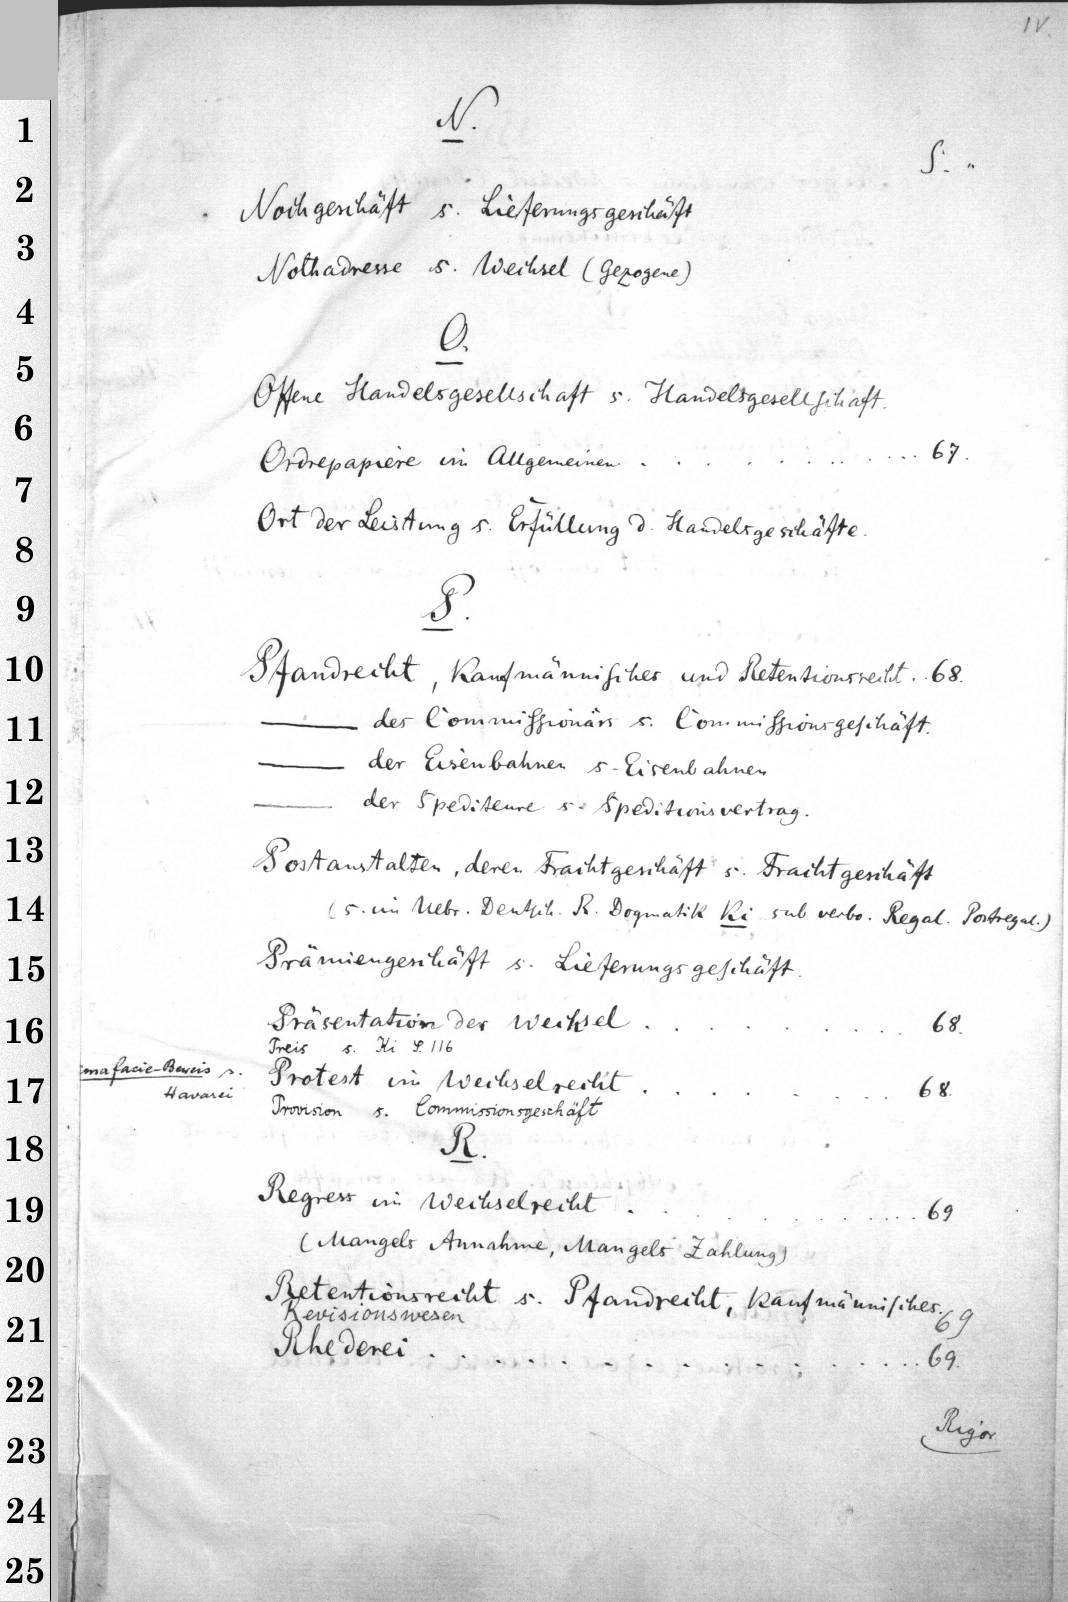 IV.
N.
S. "
Nochgeschäft s. Lieferungsgeschäft
Nothadresse s. Wechsel (Gezogene)
O.
Offene Handelsgesellschaft s. Handelsgesellschaft.
Ordrepapiere im Allgemeinen . . . . . . . . . . . . 67.
Ort der Leistung s. Erfüllung d. Handelsgeschäfte.
P.
Pfandrecht, Kaufmännisches und Retentionsrecht . . 68.
——— des Commissionärs s. Commissionsgeschäft.
——— der Eisenbahnen s. Eisenbahnen
——— der Spediteure s. Speditionsvertrag.
Postanstalten, deren Frachtgeschäft s. Frachtgeschäft
(s. im Uebr. Deutsch. R. Dogmatik Ki sub verbo. Regal. Postregal.)
Prämiengeschäft s. Lieferungsgeschäft.
Präsentation des Wechsel . . . . . . . . 68.
Preis s. Ki S. 116
ma facie-Beweis s.
Havarei
Protest im Wechselrecht . . . . . . . . 68.
Provision s. Commissionsgeschäft
R.
Regress im Wechselrecht . . . . . . . . . . . 69
(Mangels Annahme, Mangels Zahlung)
Retentionsrecht s. Pfandrecht, Kaufmännisches.
Revisionswesen 69
Rhederei . . . . . . . . . . . . . . . . 69.
Rigor
1
2
3
4
5
6
7
8
9
10
11
12
13
14
15
16
17
18
19
20
21
22
23
24
25